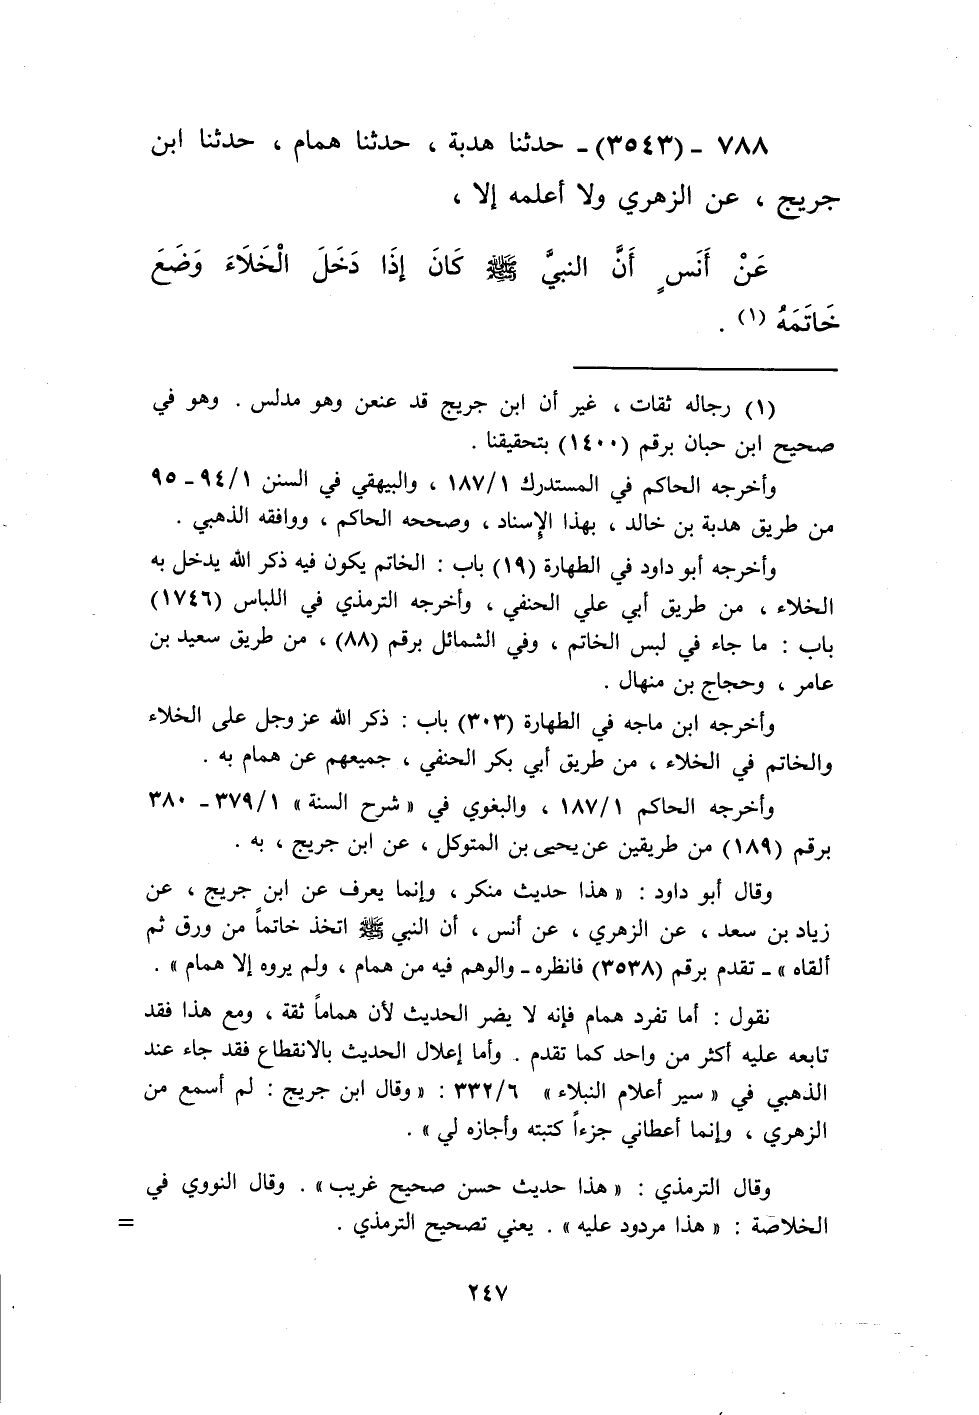 ٧٨٨ - (٣٥٤٣) - حدثنا هدبة ، حدثنا همام ، حدثنا ابن
جريج ، عن الزهري ولا أعلمه إلا ،
عَنْ أَنَسٍ أَنَّ النبيَّ ﷺ كَانَ إِذَا دَخَلَ الْخَلَاءَ وَضَعَ
خَاتَمَهُ (١) .
(١) رجاله ثقات ، غير أن ابن جريج قد عنعن وهو مدلس . وهو في
صحيح ابن حبان برقم (١٤٠٠) بتحقيقنا .
وأخرجه الحاكم في المستدرك ١٨٧/١ ، والبيهقي في السنن ٩٤/١ - ٩٥
من طريق هدبة بن خالد ، بهذا الإسناد ، وصححه الحاكم ، ووافقه الذهبي .
وأخرجه أبو داود في الطهارة (١٩) باب : الخاتم يكون فيه ذكر الله يدخل به
الخلاء ، من طريق أبي علي الحنفي ، وأخرجه الترمذي في اللباس (١٧٤٦)
باب : ما جاء في لبس الخاتم ، وفي الشمائل برقم (٨٨) ، من طريق سعيد بن
عامر ، وحجاج بن منهال .
وأخرجه ابن ماجه في الطهارة (٣٠٣) باب : ذكر الله عز وجل على الخلاء
والخاتم في الخلاء ، من طريق أبي بكر الحنفي ، جميعهم عن همام به .
وأخرجه الحاكم ١٨٧/١ ، والبغوي في « شرح السنة » ٣٧٩/١ - ٣٨٠
برقم (١٨٩) من طريقين عن يحيى بن المتوكل ، عن ابن جريج ، به .
وقال أبو داود : « هذا حديث منكر ، وإنما يعرف عن ابن جريج ، عن
زياد بن سعد ، عن الزهري ، عن أنس ، أن النبي ﷺ اتخذ خاتماً من ورق ثم
ألقاه » - تقدم برقم (٣٥٣٨) فانظره - والوهم فيه من همام ، ولم يروه إلا همام » .
نقول : أما تفرد همام فإنه لا يضر الحديث لأن هماماً ثقة ، ومع هذا فقد
تابعه عليه أكثر من واحد كما تقدم . وأما إعلال الحديث بالانقطاع فقد جاء عند
الذهبي في « سير أعلام النبلاء » ٣٣٢/٦ : « وقال ابن جريج : لم أسمع من
الزهري ، وإنما أعطاني جزءاً كتبته وأجازه لي » .
وقال الترمذي : « هذا حديث حسن صحيح غريب » . وقال النووي في
الخلاصة : « هذا مردود عليه » . يعني تصحيح الترمذي . =
٢٤٧